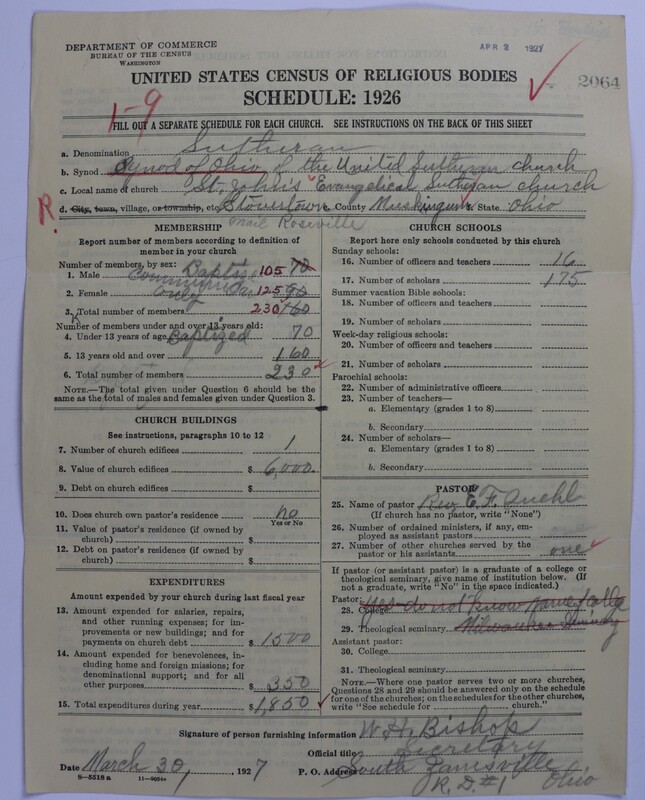 DEPARTMENT OF COMMERCE
BUREAU OF THE CENSUS
WASHINGTON
APR 2 1927
2064
UNITED STATES CENSUS OF RELIGIOUS BODIES
SCHEDULE: 1926
1-9
FILL OUT A SEPARATE SCHEDULE FOR EACH CHURCH. SEE INSTRUCTIONS ON THE BACK OF THIS SHEET
a. Denomination Lutheran
b. Synod Synod of Ohio of the United Lutheran church
c. Local name of church St. John's Evangelical Lutheran church
R. d. City, town, village, or township, etc. Stovertown e. County Muskingum f. State Ohio
mail Roseville
MEMBERSHIP
Report number of members according to definition of member in your church
Number of members, by sex:
1. Male Baptis 105 70
Communicants only
2. Female 125 90
3. Total number of members 230 160
Number of members under and over 13 years old:
4. Under 13 years of age Baptized 70
5. 13 years old and over 160
6. Total number of members 230
NOTE.—The total given under Question 6 should be the same as the total of males and females given under Question 3.
CHURCH BUILDINGS
See instructions, paragraphs 10 to 12
7. Number of church edifices 1
8. Value of church edifices $ 6,000.
9. Debt on church edifices $
10. Does church own pastor's residence? no
Yes or No
11. Value of pastor's residence (if owned by church) $
12. Debt on pastor's residence (if owned by church) $
EXPENDITURES
Amount expended by your church during last fiscal year
13. Amount expended for salaries, repairs, and other running expenses; for improvements or new buildings; and for payments on church debt $ 1500
14. Amount expended for benevolences, including home and foreign missions; for denominational support; and for all other purposes $ 350
15. Total expenditures during year $ 1,850
CHURCH SCHOOLS
Report here only schools conducted by this church
Sunday schools:
16. Number of officers and teachers 16
17. Number of scholars 175
Summer vacation Bible schools:
18. Number of officers and teachers
19. Number of scholars
Week-day religious schools:
20. Number of officers and teachers
21. Number of scholars
Parochial schools:
22. Number of administrative officers
23. Number of teachers—
a. Elementary (grades 1 to 8)
b. Secondary
24. Number of scholars—
a. Elementary (grades 1 to 8)
b. Secondary
PASTOR
25. Name of pastor Rev. E. F.
(If church has no pastor, write "None")
26. Number of ordained ministers, if any, employed as assistant pastors
27. Number of other churches served by the pastor or his assistants one
If pastor (or assistant pastor) is a graduate of a college or theological seminary, give name of institution below. (If not a graduate, write "No" in the space indicated.)
Pastor:
28. College yes-do not know name of college
29. Theological seminary Milwaukee Seminary
Assistant pastor:
30. College
31. Theological seminary
NOTE.—Where one pastor serves two or more churches, Questions 28 and 29 should be answered only on the schedule for one of the churches; on the schedules for the other churches, write "See schedule for church."
Signature of person furnishing information W. H. Bishop
Official title Secretary
Date March 30, 1927 P. O. Address South Zanesville
R. D. #1 Ohio
8-5518 a